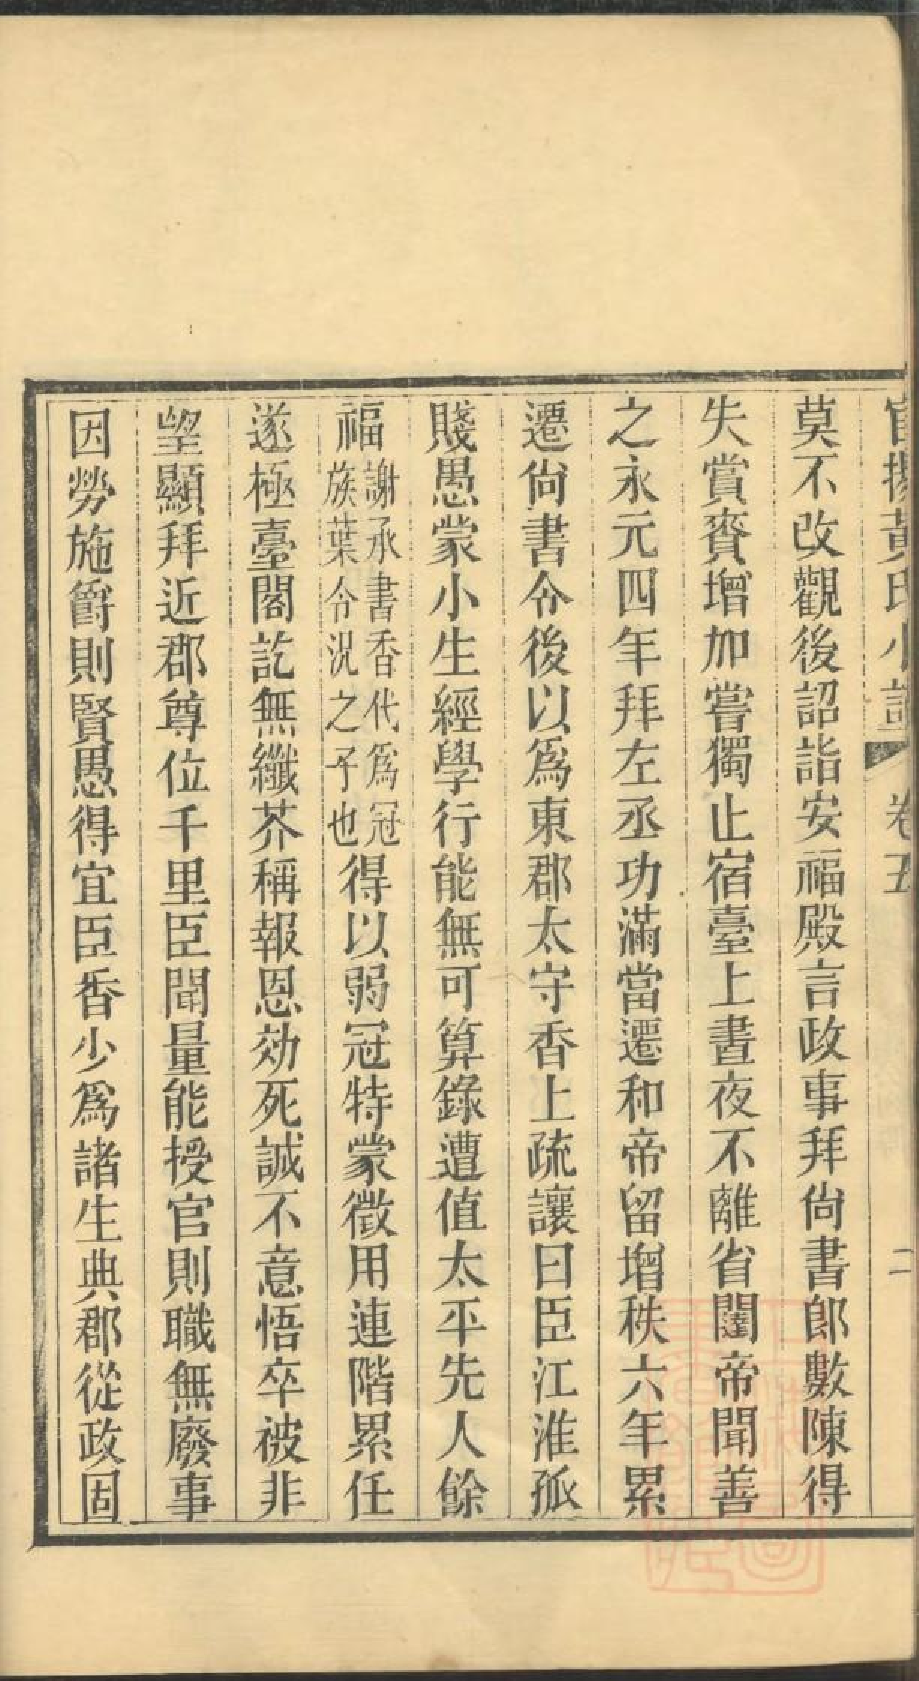 黃氏小譜 卷五 二
莫不改觀後詔詣安福殿言政事拜尙書郎數陳得
失賞賚增加嘗獨止宿臺上晝夜不離省闥帝聞善
之永元四年拜左丞功滿當遷和帝留增秩六年累
遷尙書令後以爲東郡太守香上疏讓曰臣江淮孤
賤愚蒙小生經學行能無可算錄遭值太平先人餘
福謝承書香代爲冠族葉令況之子也得以弱冠特蒙徵用連階累任
遂極臺閣訖無纖芥稱報恩効死誠不意悟卒被非
望顯拜近郡尊位千里臣聞量能授官則職無廢事
因勞施爵則賢愚得宜臣香少爲諸生典郡從政固